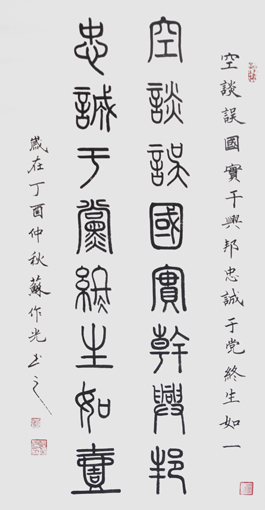 空談誤國實干興邦忠誠于党終生如一
空談誤國實幹興邦
忠誠于黨終生如壹
歲在丁酉仲秋蘇作光書